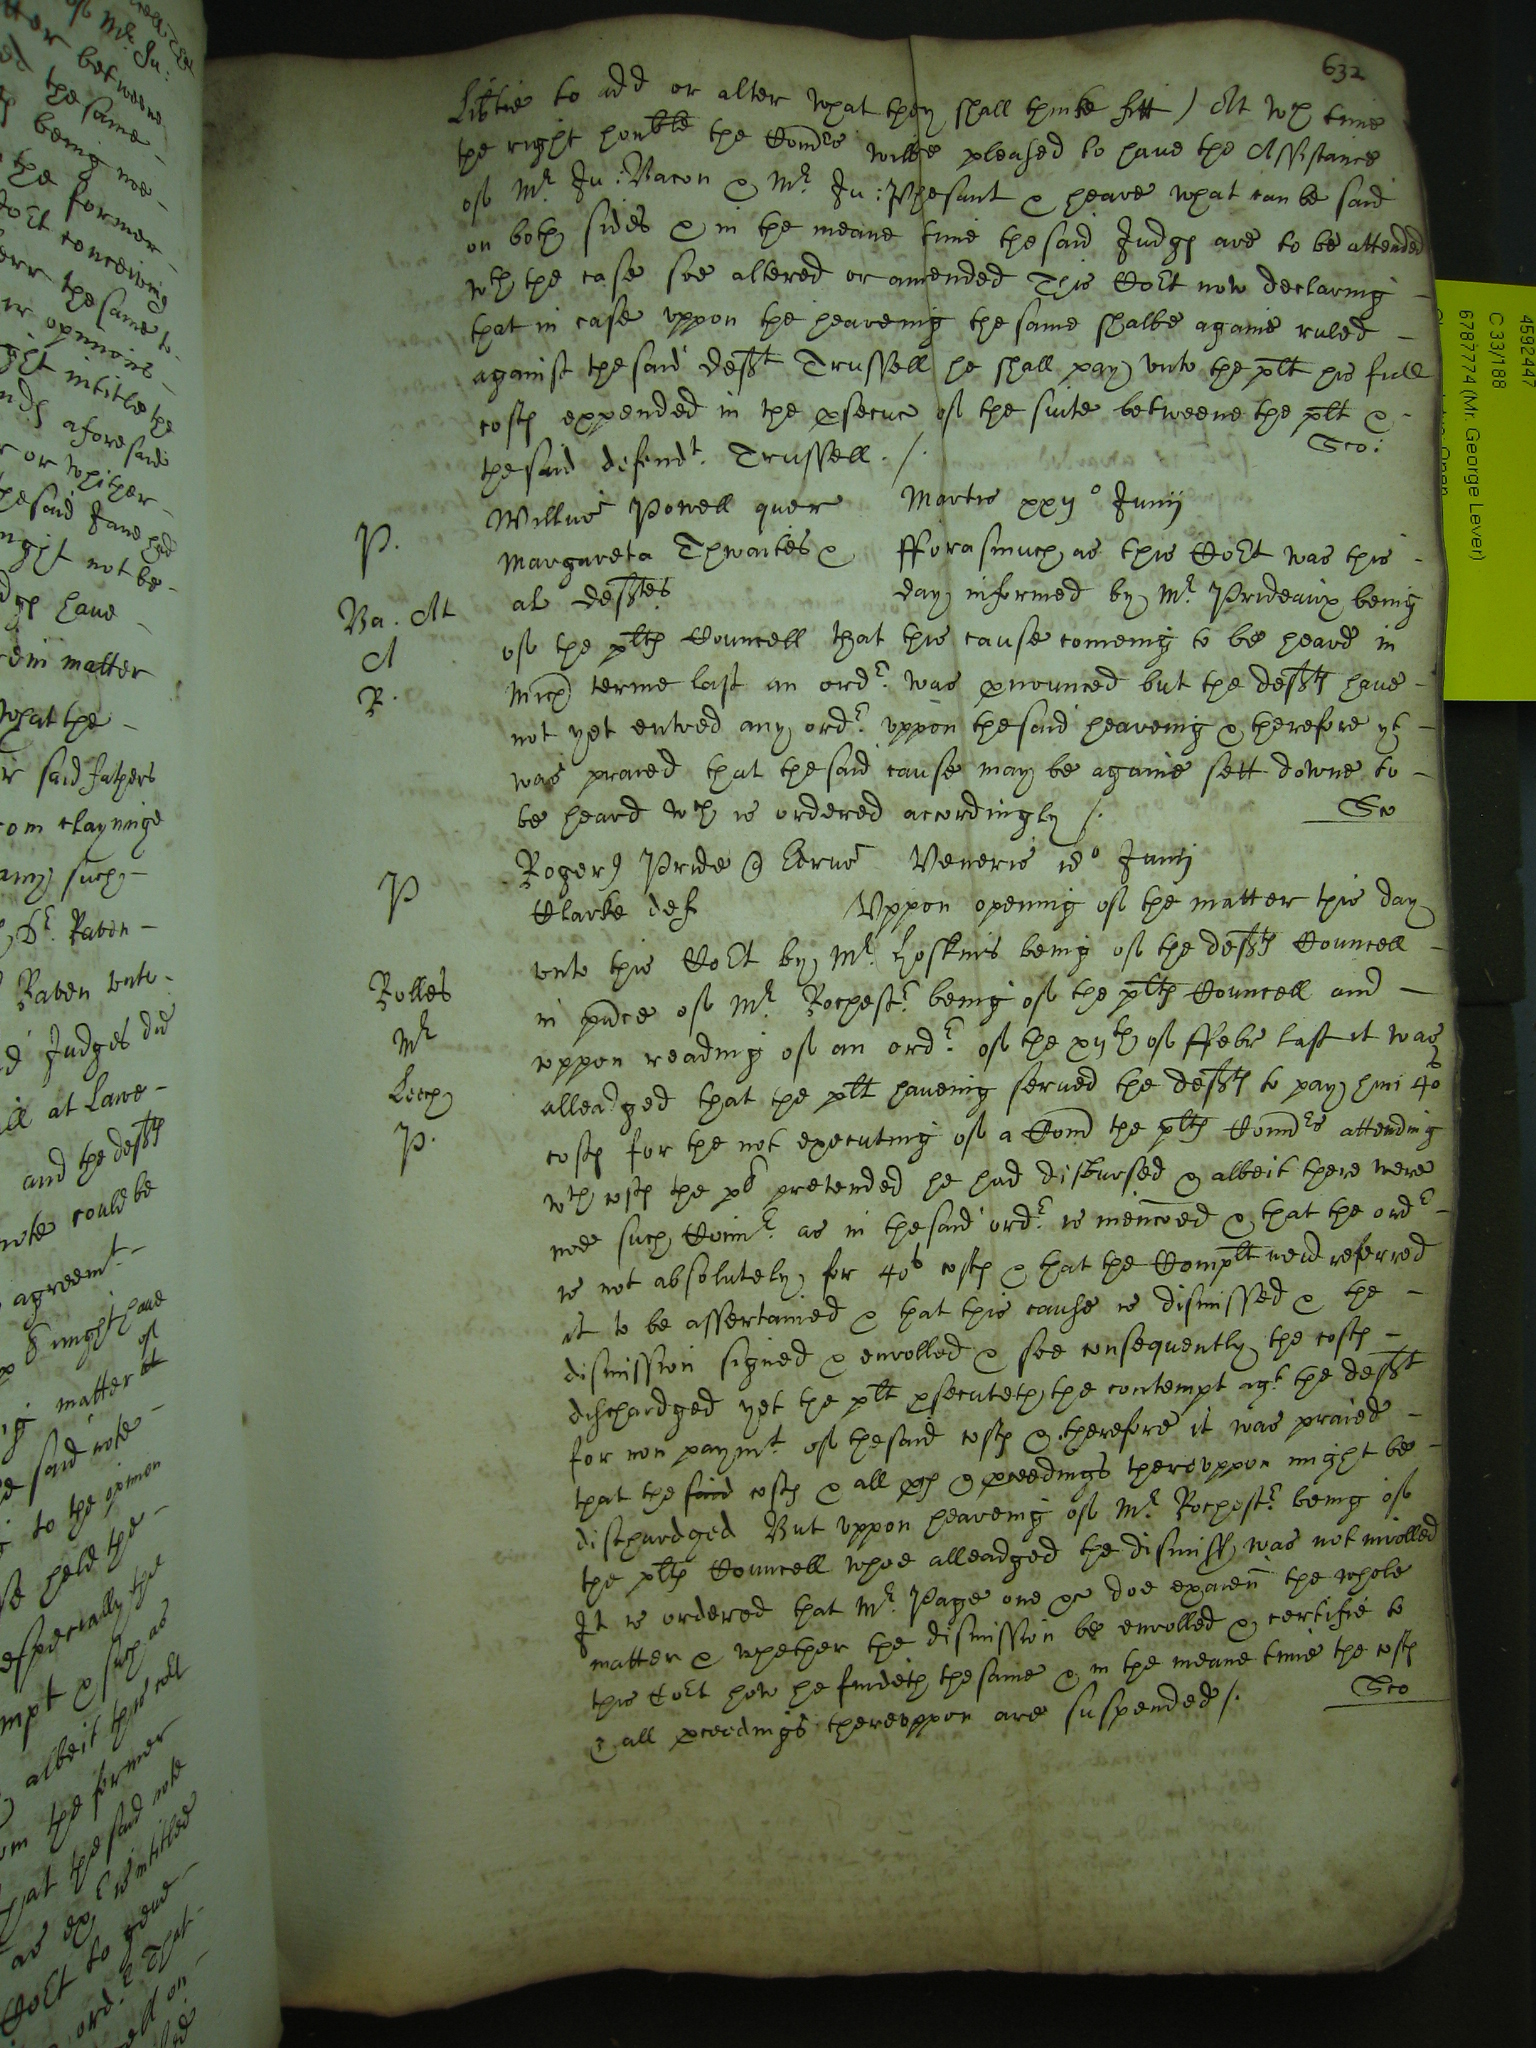 632
Lib'tie to add or alter what they shall thinke fitt) At wch time
the right honble the Comrs wilbe pleased to have the Assistance
of Mr Ju: Bacon & Mr Ju: Phesant & heare what can be said
on both sides & in the meane time the said Judges are to be attended
wth the case soe altered or amended This Cort now declaring
that in case uppon the heareing the same shalbe againe ruled
against the said deft Trussell he shall pay unto the plt his full
costs expended in the psecuc of the suite betweene the plt &
the said defendt. Trussell ./.
Sco:
P.
Willus Powell quer
Martis xxijo Junij
Margareta Thwaites &
fforasmuch as this Cort was this
Va. At
al deftes
day informed by Mr Prideaux being
A
of the plts Councell that this cause comeing to be heard in
R.
Mich terme last an ordr. was pnounced but the defts have
not yet entred any ordr. uppon the said heareing & therefore yt
was praied that the said cause may be againe sett downe to
be heard wch is ordered accordingly /.
Sco
P
Rogers Pride q
Veneris 18o Junij
Clarke def
Uppon opening of the matter this day
unto this Cort by Mr. Hoskins being of the defts Councell
Rolles
in pnce of Mr. Rochestr. being of the plts Councell and
Mr
uppon reading of an ordr. of the xijth of ffebr last it was
Leech
alleadged that the plt haveing served the defts to pay him 40s
P.
costs for the not executing of a Com the plts Comrs attending
wch costs the plt pretended he had disbursed & albeit there were
noe such Comrs. as in the said ordr. is menconed & that the ordr
is not absolutely for 40s costs & that the Complt never referred
it to be assertained & that this cause is dismissed & the
dismission signed & enrolled & soe consequently the costs
dischardged yet the plt psecuteth the contempt agt the deft
for non paymt of the said costs & therefore it was praied
that the said costs & all pces & pceedings thereuppon might be
dischardged But uppon heareing of Mr. Rochestr. being of
the plts Councell whoe alleadged the dismission was not inrolled
It is ordered that Mr. Page one &c doe examen the whole
matter & whether the dismission be enrolled & certifie to
this Cort how he findeth the same & in the meane time the costs
& all pceedings thereuppon are suspended /.
Sco
4592447
C 33/188
6787774 (Mr. George Lever)
of Mr. Ju:
betweene
the same
being noe
the former
Cort conceiving
the same
opinions
intitle the
aforesaid
or whither
the said Jane
might not be
have
matter
what the
said fathers
from clayminge
any such
Dr. Raven
Raven unto
Judges did
at Lawe
and the defts
note could be
agreemt
might have
of
matter
the said note
to the opinion
held the
especially the
& such as
albeit this
the former
that the said note
intitled
Cort to
ordr. That